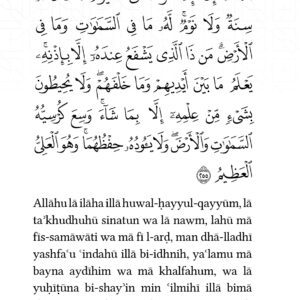 سِنَةٌ وَلَا نَوْمٌ ۚ لَّهُۥ مَا فِى ٱلسَّمَـٰوَٰتِ وَمَا فِى
ٱلْأَرْضِ ۗ مَن ذَا ٱلَّذِى يَشْفَعُ عِندَهُۥٓ إِلَّا بِإِذْنِهِۦ ۚ
يَعْلَمُ مَا بَيْنَ أَيْدِيهِمْ وَمَا خَلْفَهُمْ ۖ وَلَا يُحِيطُونَ
بِشَىْءٍ مِّنْ عِلْمِهِۦٓ إِلَّا بِمَا شَآءَ ۚ وَسِعَ كُرْسِيُّهُ
ٱلسَّمَـٰوَٰتِ وَٱلْأَرْضَ ۖ وَلَا يَـُٔودُهُۥ حِفْظُهُمَا ۚ وَهُوَ ٱلْعَلِىُّ
ٱلْعَظِيمُ ٢٥٥
Allāhu lā ilāha illā huwal-ḥayyul-qayyūm, lā
ta’khudhuhū sinatun wa lā nawm, lahū mā
fīs-samāwāti wa mā fi l-arḍ, man dhā-lladhī
yashfa‘u ‘indahū illā bi-idhnih, ya‘lamu mā
bayna aydīhim wa mā khalfahum, wa lā
yuḥīṭūna bi-shay’in min ‘ilmihī illā bimā